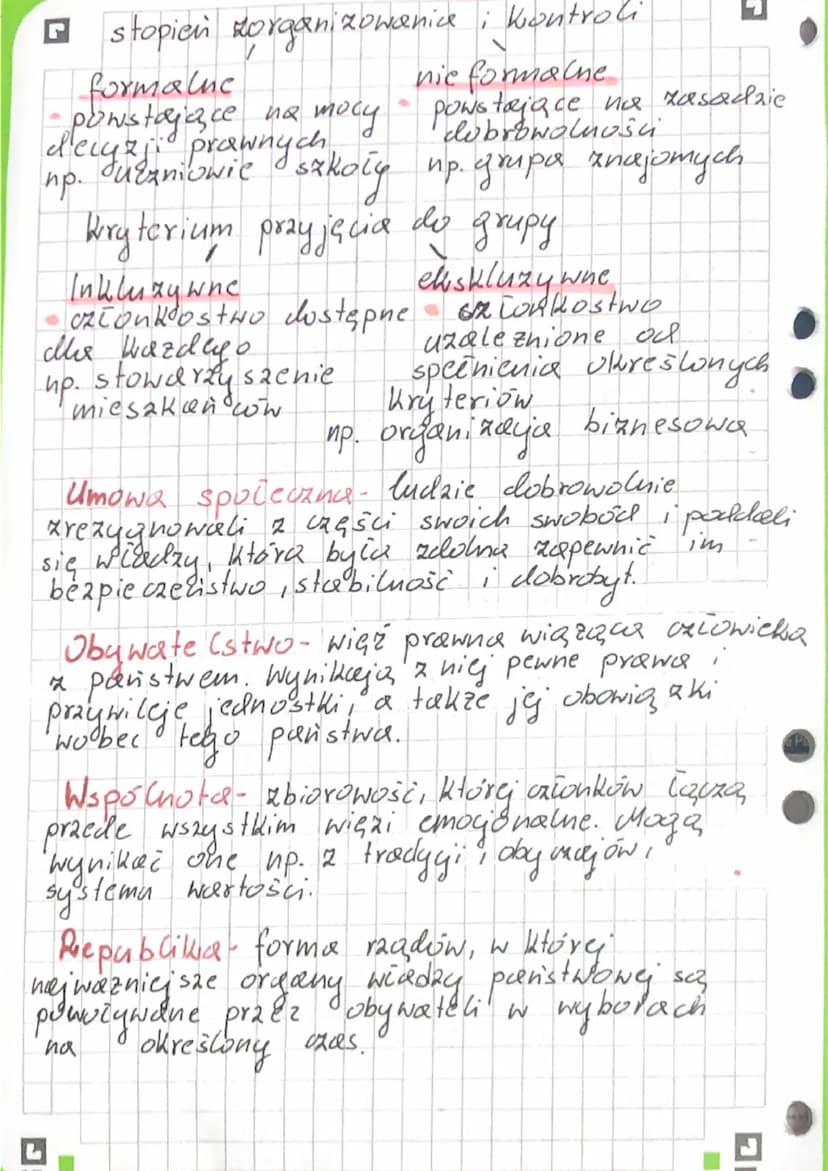 stopień zorganizowania i kontroli
formalne
nieformalne
• powstające na mocy
decyzji prawnych
np. uczniowie szkoły
• powstające na zasadzie
dobrowolności
np. grupa znajomych
kryterium przyjęcia do grupy
Inkluzywne
ekskluzywne
• członkostwo dostępne
dla każdego
np. stowarzyszenie
mieszkańców
• członkostwo
uzależnione od
spełnienia określonych
kryteriów
np. organizacja biznesowa
Umowa społeczna - ludzie dobrowolnie
zrezygnowali z części swoich swobód i poddali
się władzy, która była zdolna zapewnić im
bezpieczeństwo, stabilność i dobrobyt.
Obywatelstwo - więź prawna wiążąca człowieka
z państwem. Wynikają z niej pewne prawa i
przywileje jednostki, a także jej obowiązki
wobec tego państwa.
Wspólnota - zbiorowość, której członków łączą
przede wszystkim więzi emocjonalne. Mogą
wynikać one np. z tradycji, obyczajów,
systemu wartości.
Republika - forma rządów, w której
najważniejsze organy władzy państwowej są
powoływane przez obywateli w wyborach
na określony czas.